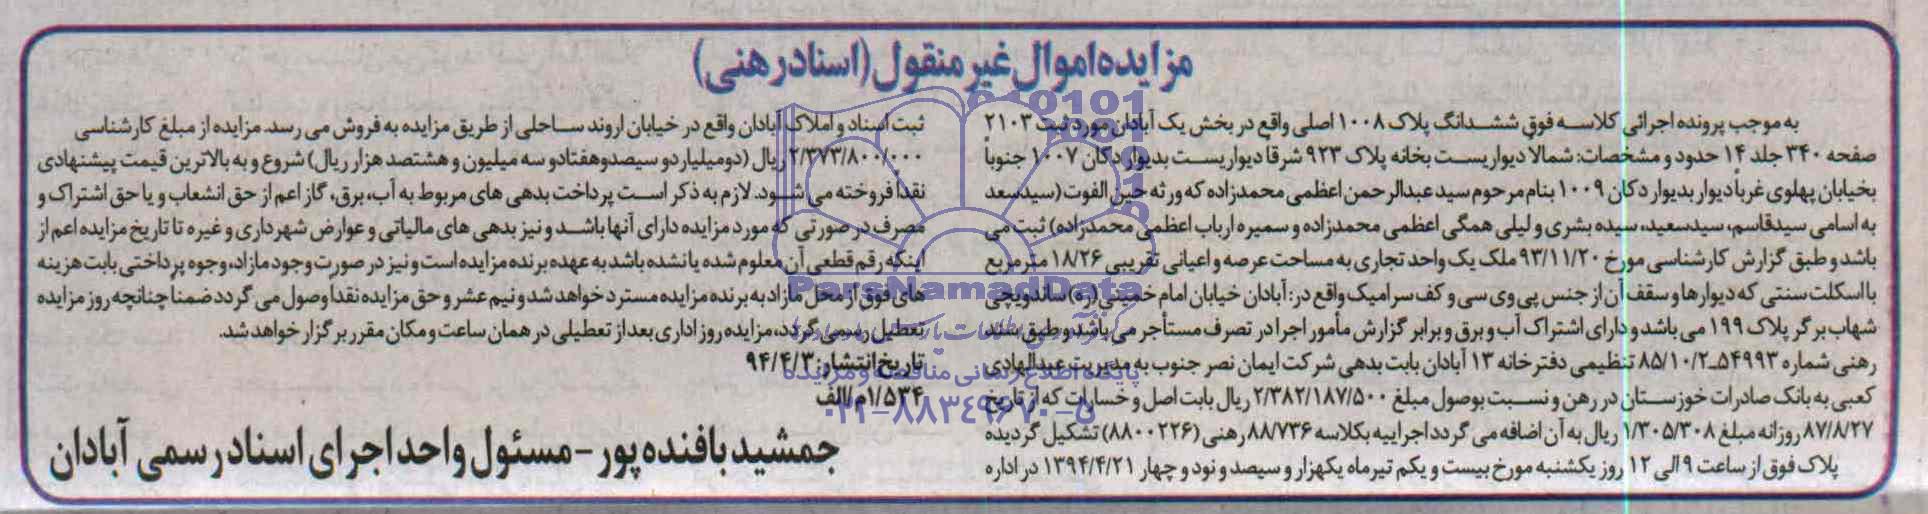 مزایده اموال غیر منقول (اسناد رهنی)
به موجب پرونده اجرائی کلاسه فوق ششدانگ پلاک ۱۰۰۸ اصلی واقع در بخش یک آبادان مورد ثبت ۲۱۰۳
صفحه ۳۴۰ جلد ۱۴ حدود و مشخصات: شمالاً دیواریست بخانه پلاک ۹۲۳ شرقاً دیواریست بدیوار دکان ۱۰۰۷ جنوباً
بخیابان پهلوی غرباً دیوار بدیوار دکان ۱۰۰۹ بنام مرحوم سید عبدالرحمن اعظمی محمدزاده که ورثه حین الفوت (سیدسعد
به اسامی سیدقاسم، سیدسعید، سیده بشری و لیلی همگی اعظمی محمدزاده و سمیره ارباب اعظمی محمدزاده) ثبت می
باشد و طبق گزارش کارشناسی مورخ ۹۳/۱۱/۲۰ ملک یک واحد تجاری به مساحت عرصه و اعیانی تقریبی ۱۸/۲۶ مترمربع
با اسکلت سنتی که دیوارها و سقف آن از جنس پی وی سی و کف سرامیک واقع در: آبادان خیابان امام خمینی (ره) ساندویچی
شهاب برگر پلاک ۱۹۹ می باشد و دارای اشتراک آب و برق و برابر گزارش مأمور اجرا در تصرف مستأجر می باشد و طبق سند
رهنی شماره ۵۴۹۹۳ـ۸۵/۱۰/۲ تنظیمی دفترخانه ۱۳ آبادان بابت بدهی شرکت ایمان نصر جنوب به مدیریت عبدالهادی
کعبی به بانک صادرات خوزستان در رهن و نسبت بوصول مبلغ ۲/۳۸۲/۱۸۷/۵۰۰ ریال بابت اصل و خسارات که از تاریخ
۸۷/۸/۲۷ روزانه مبلغ ۱/۳۰۵/۳۰۸ ریال به آن اضافه می گردد اجراییه بکلاسه ۸۸/۷۳۶ رهنی (۸۸۰۰۲۲۶) تشکیل گردیده
پلاک فوق از ساعت ۹ الی ۱۲ روز یکشنبه مورخ بیست و یکم تیرماه یکهزار و سیصد و نود و چهار ۱۳۹۴/۴/۲۱ در اداره
ثبت اسناد و املاک آبادان واقع در خیابان اروند ساحلی از طریق مزایده به فروش می رسد. مزایده از مبلغ کارشناسی
۲/۳۷۳/۸۰۰/۰۰۰ ریال (دو میلیارد و سیصد و هفتاد و سه میلیون و هشتصد هزار ریال) شروع و به بالاترین قیمت پیشنهادی
نقداً فروخته می شود. لازم به ذکر است پرداخت بدهی های مربوط به آب، برق، گاز اعم از حق انشعاب و یا حق اشتراک و
مصرف در صورتی که مورد مزایده دارای آنها باشد و نیز بدهی های مالیاتی و عوارض شهرداری و غیره تا تاریخ مزایده اعم از
اینکه رقم قطعی آن معلوم شده یا نشده باشد به عهده برنده مزایده است و نیز در صورت وجود مازاد، وجوه پرداختی بابت هزینه
های فوق از محل مازاد به برنده مزایده مسترد خواهد شد و نیم عشر و حق مزایده نقداً وصول می گردد ضمناً چنانچه روز مزایده
تعطیل رسمی گردد، مزایده روز اداری بعد از تعطیلی در همان ساعت و مکان مقرر برگزار خواهد شد.
تاریخ انتشار: ۹۴/۴/۳
۱/۵۳۴/م/الف
جمشید بافنده پور - مسئول واحد اجرای اسناد رسمی آبادان
ParsNamadData
پایگاه اطلاع رسانی مناقصه و مزایده
۰۲۱-۸۸۳۴۹۶۷۰-۵